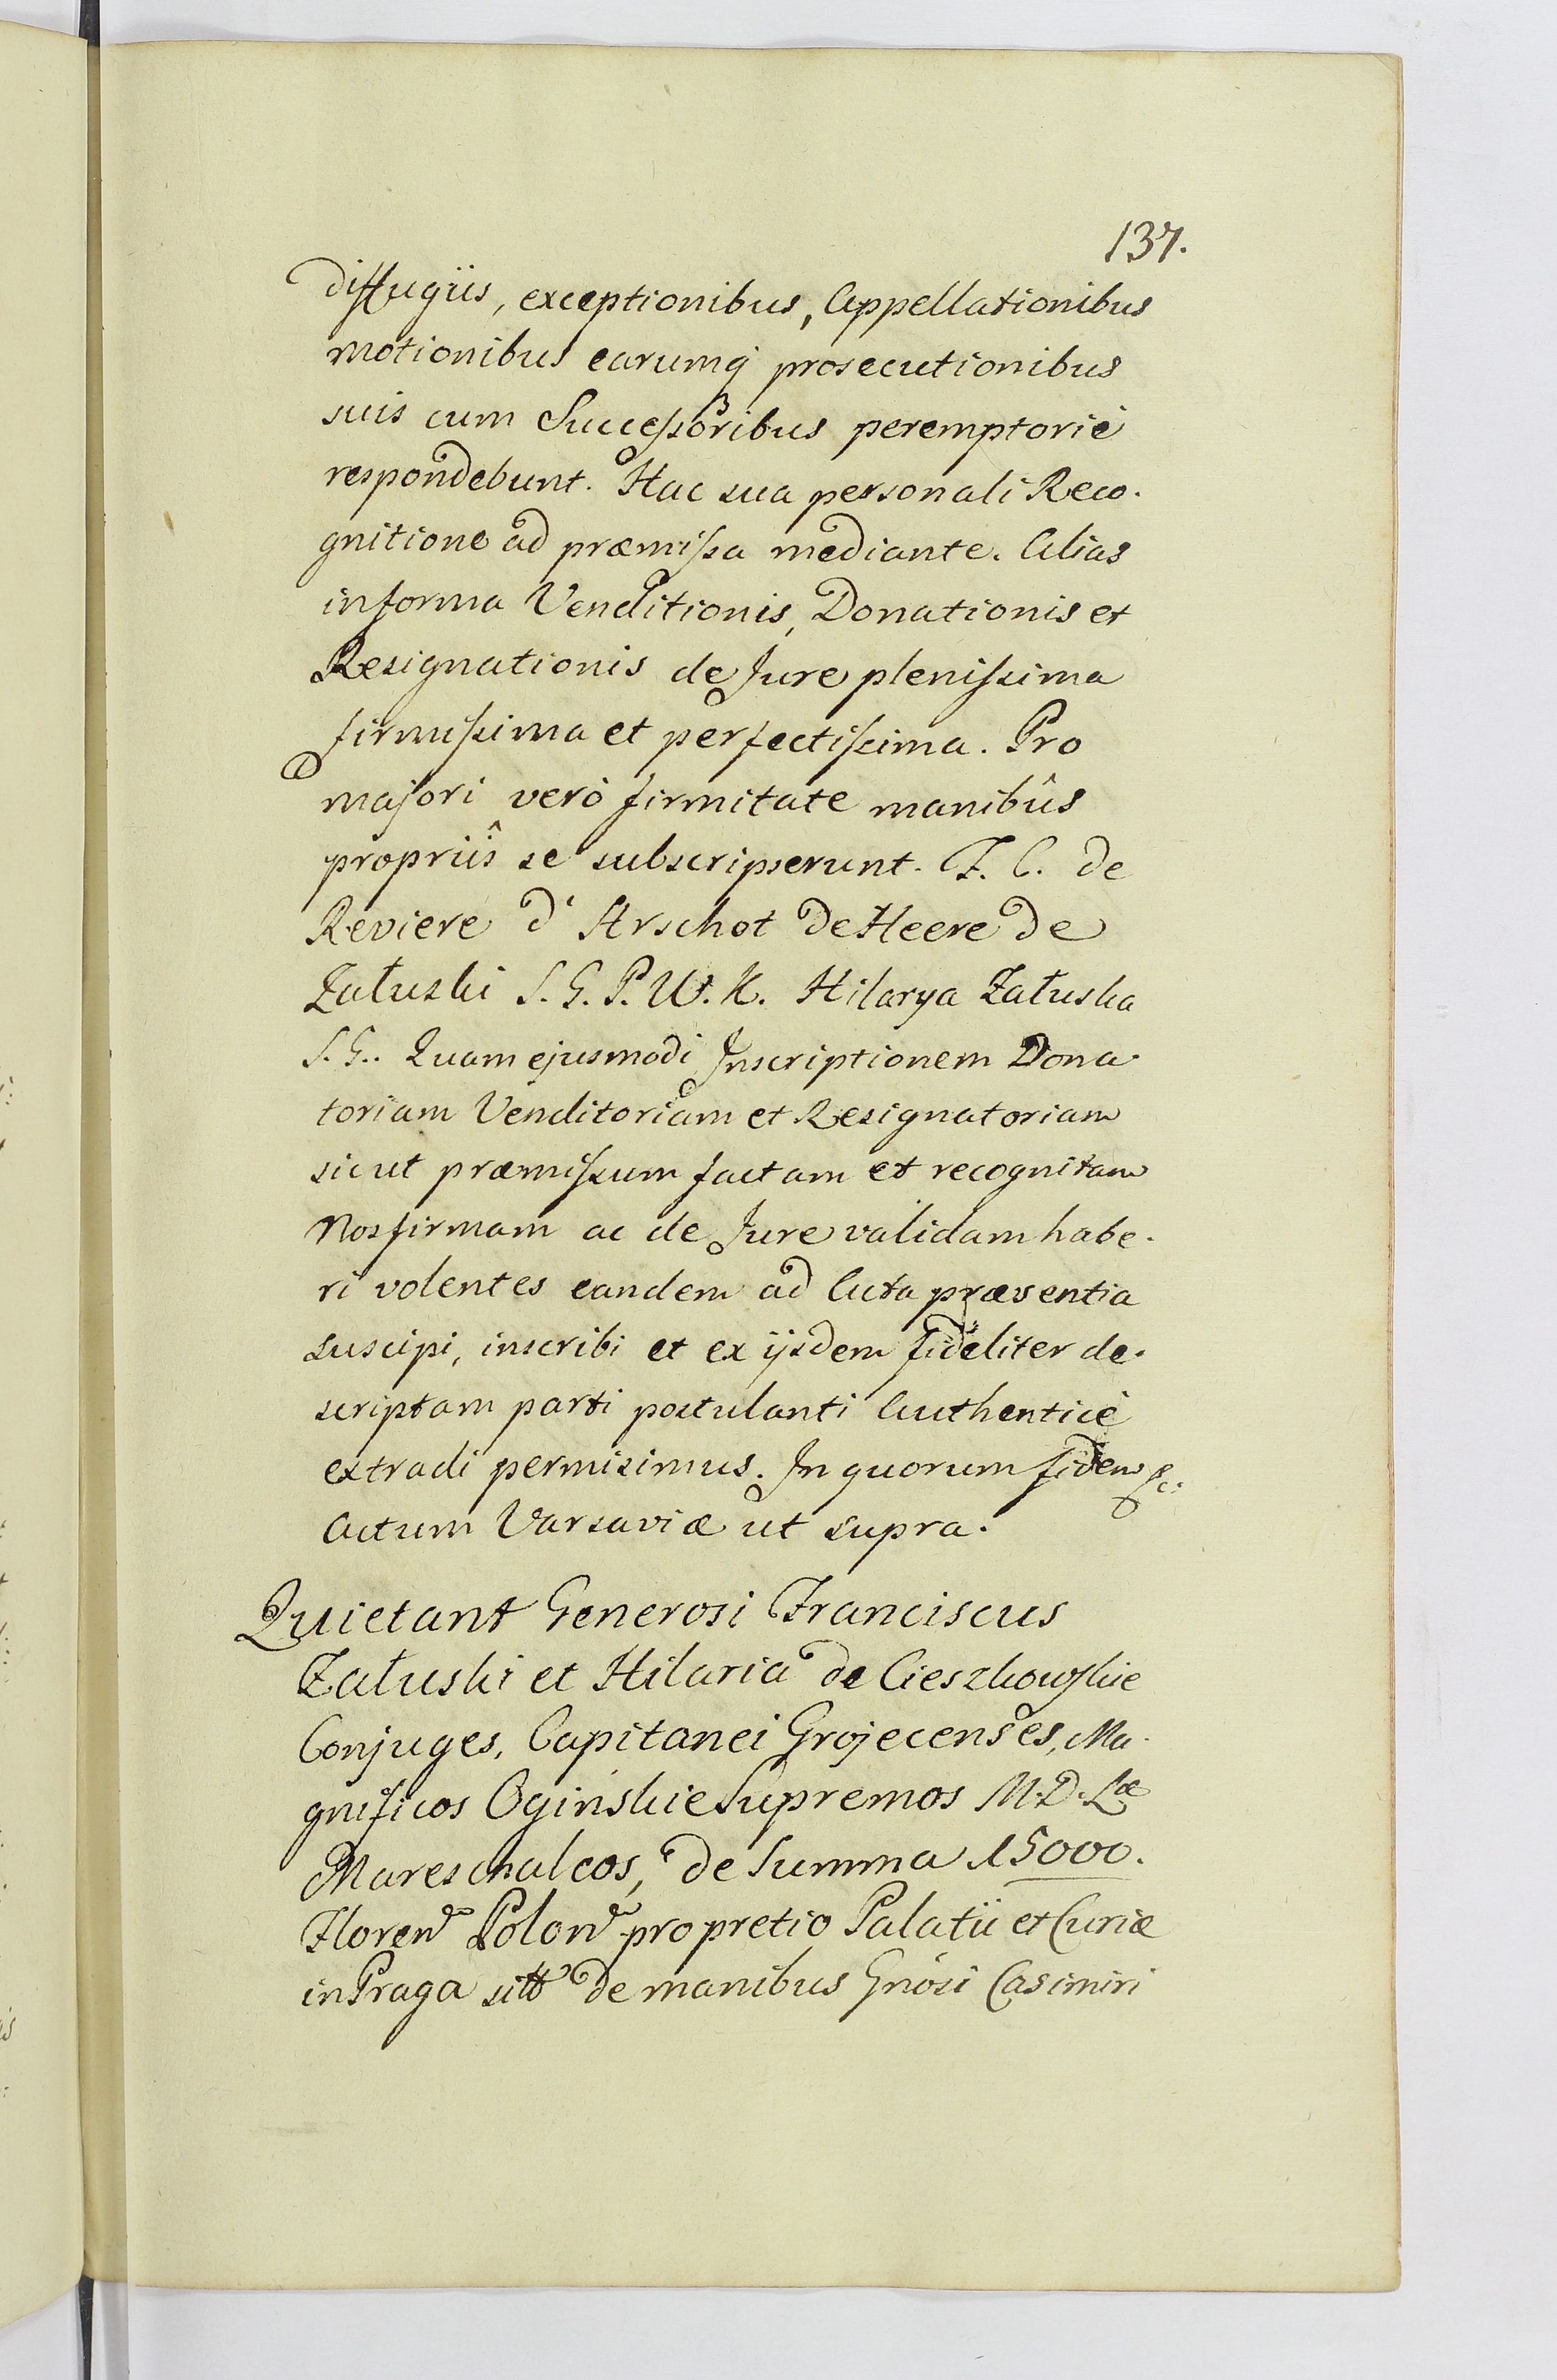 137.
diffugiis, exceptionibus, Appellationibus
motionibus earumq́ prosecutionibus
suis cum Successoribus peremptoriè
respondebunt. Hac sua personali Reco-
gnitione ad præmissa mediante. Alias
in forma Venditionis, Donationis et
Resignationis de Jure plenissima
firmissima et perfectissima. Pro
majori verò firmitate manibûs
propriîs se subscripserunt. F. C. de
Reviere d' Arschot de Heere de
Załuski S. G. P. W. K. Hilarya Załuska
S. G.. Quam ejusmodi Inscriptionem Dona-
toriam Venditoriam et Resignatoriam
sicut præmissum factam et recognitam
Nos firmam ac de Jure validam habe-
ri volentes eandem ad Acta præsentia
suscipi, inscribi et ex ijsdem fideliter de-
scriptam parti postulanti Authenticè
extradi permisimus. In quorum fidem &c:
Actum Varsaviæ ut supra.
Quietant Generosi Franciscus
Załuski et Hilaria de Cieszkowskie
Conjuges, Capitanei Grojecenses, Ma-
gnificos Ogińskie Supremos M. D. Læ
Mareschalcos, de Summa 15000.
Floren Polon pro pretio Palatii et Curiæ
in Praga sitt de manibus Gnôsi Casimiri